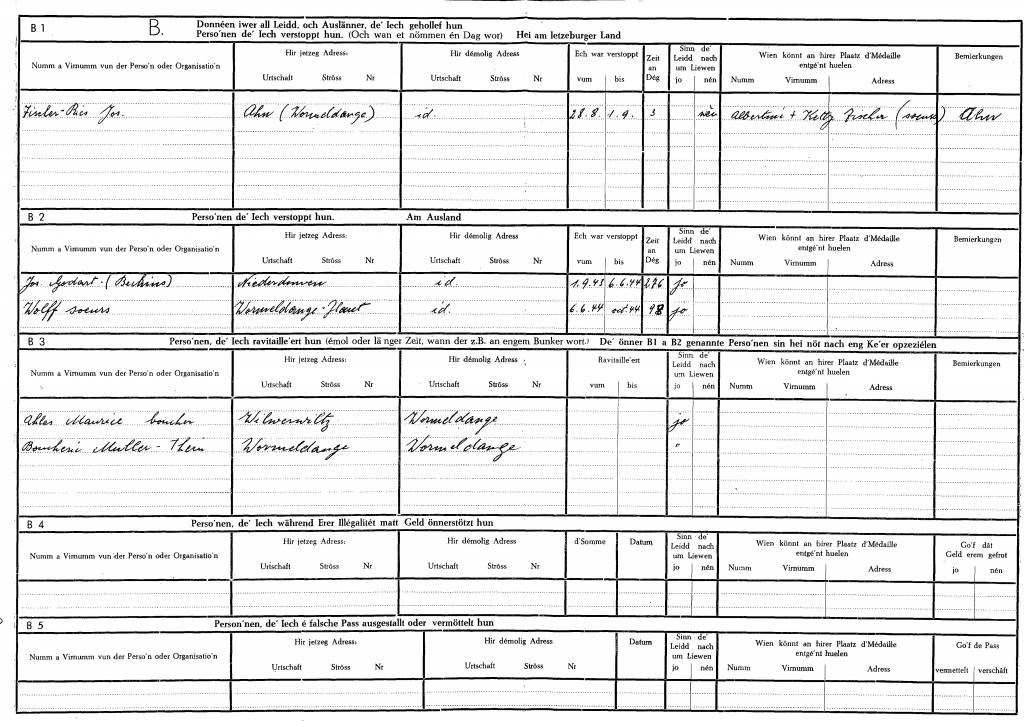 B 1 B. Donnéen iwer all Leidd, och Auslänner, de' Iech gehollef hun
Perso'nen de' Iech verstoppt hun. (Och wan et nömmen én Dag wor) Hei am letzeburger Land
Numm a Virnumm vun der Perso'n oder Organisatio'n Hir jetzeg Adress: Urtschaft Ströss Nr Hir démolig Adress Urtschaft Ströss Nr Ech war verstoppt vum bis Zeit an Dég Sinn de' Leidd nach um Liewen jo nén Wien könnt an hirer Plaatz d'Médaille entgé'nt huelen Numm Virnumm Adress Bemierkungen
Fischer-Ries Jos. Ahn (Wormeldange) id. 28.8. 1.9. 3 Albertine + Ketty Fischer (soeurs) Ahn
B 2 Perso'nen de' Iech verstoppt hun. Am Ausland
Numm a Virnumm vun der Perso'n oder Organisatio'n Hir jetzeg Adress: Urtschaft Ströss Nr Hir démolig Adress Urtschaft Ströss Nr Ech war verstoppt vum bis Zeit an Dég Sinn de' Leidd nach um Liewen jo nén Wien könnt an hirer Plaatz d'Médaille entgé'nt huelen Numm Virnumm Adress Bemierkungen
Jos. Godart-(Berkins) Niederdonven id. 1.9.43 6.6.44 276 jo
Wolff soeurs Wormeldange-Haut id. 6.6.44 oct.44 98 jo
B 3 Perso'nen, de' Iech ravitaille'ert hun (émol oder länger Zeit, wann der z.B. an engem Bunker wort.) De' önner B1 a B2 genannte Perso'nen sin hei nöt nach eng Ke'er opzeziélen
Numm a Virnumm vun der Perso'n oder Organisatio'n Hir jetzeg Adress: Urtschaft Ströss Nr Hir démolig Adress Urtschaft Ströss Nr Ravitaille'ert vum bis Sinn de' Leidd nach um Liewen jo nén Wien könnt an hirer Plaatz d'Médaille entgé'nt huelen Numm Virnumm Adress Bemierkungen
Ahles Maurice boucher Wilwerwiltz Wormeldange jo
Boucherie Muller-Thein Wormeldange Wormeldange "
B 4 Perso'nen, de' Iech während Erer Illégalitét matt Geld önnerstötzt hun
Numm a Virnumm vun der Perso'n oder Organisatio'n Hir jetzeg Adress: Urtschaft Ströss Nr Hir démolig Adress: Urtschaft Ströss Nr d'Somme Datum Sinn de' Leidd nach um Liewen jo nén Wien könnt an hirer Plaatz d'Médaille entgé'nt huelen Numm Virnumm Adress Go'f dât Geld erem gefrot jo nén
B 5 Person'nen, de' Iech é falsche Pass ausgestallt oder vermöttelt hun
Numm a Virnumm vun der Perso'n oder Organisatio'n Hir jetzeg Adress: Urtschaft Ströss Nr Hir démolig Adress: Urtschaft Ströss Nr Datum Sinn de' Leidd nach um Liewen jo nén Wien könnt an hirer Plaatz d'Médaille entgé'nt huelen Numm Virnumm Adress Go'f de Pass vermettelt verschâft